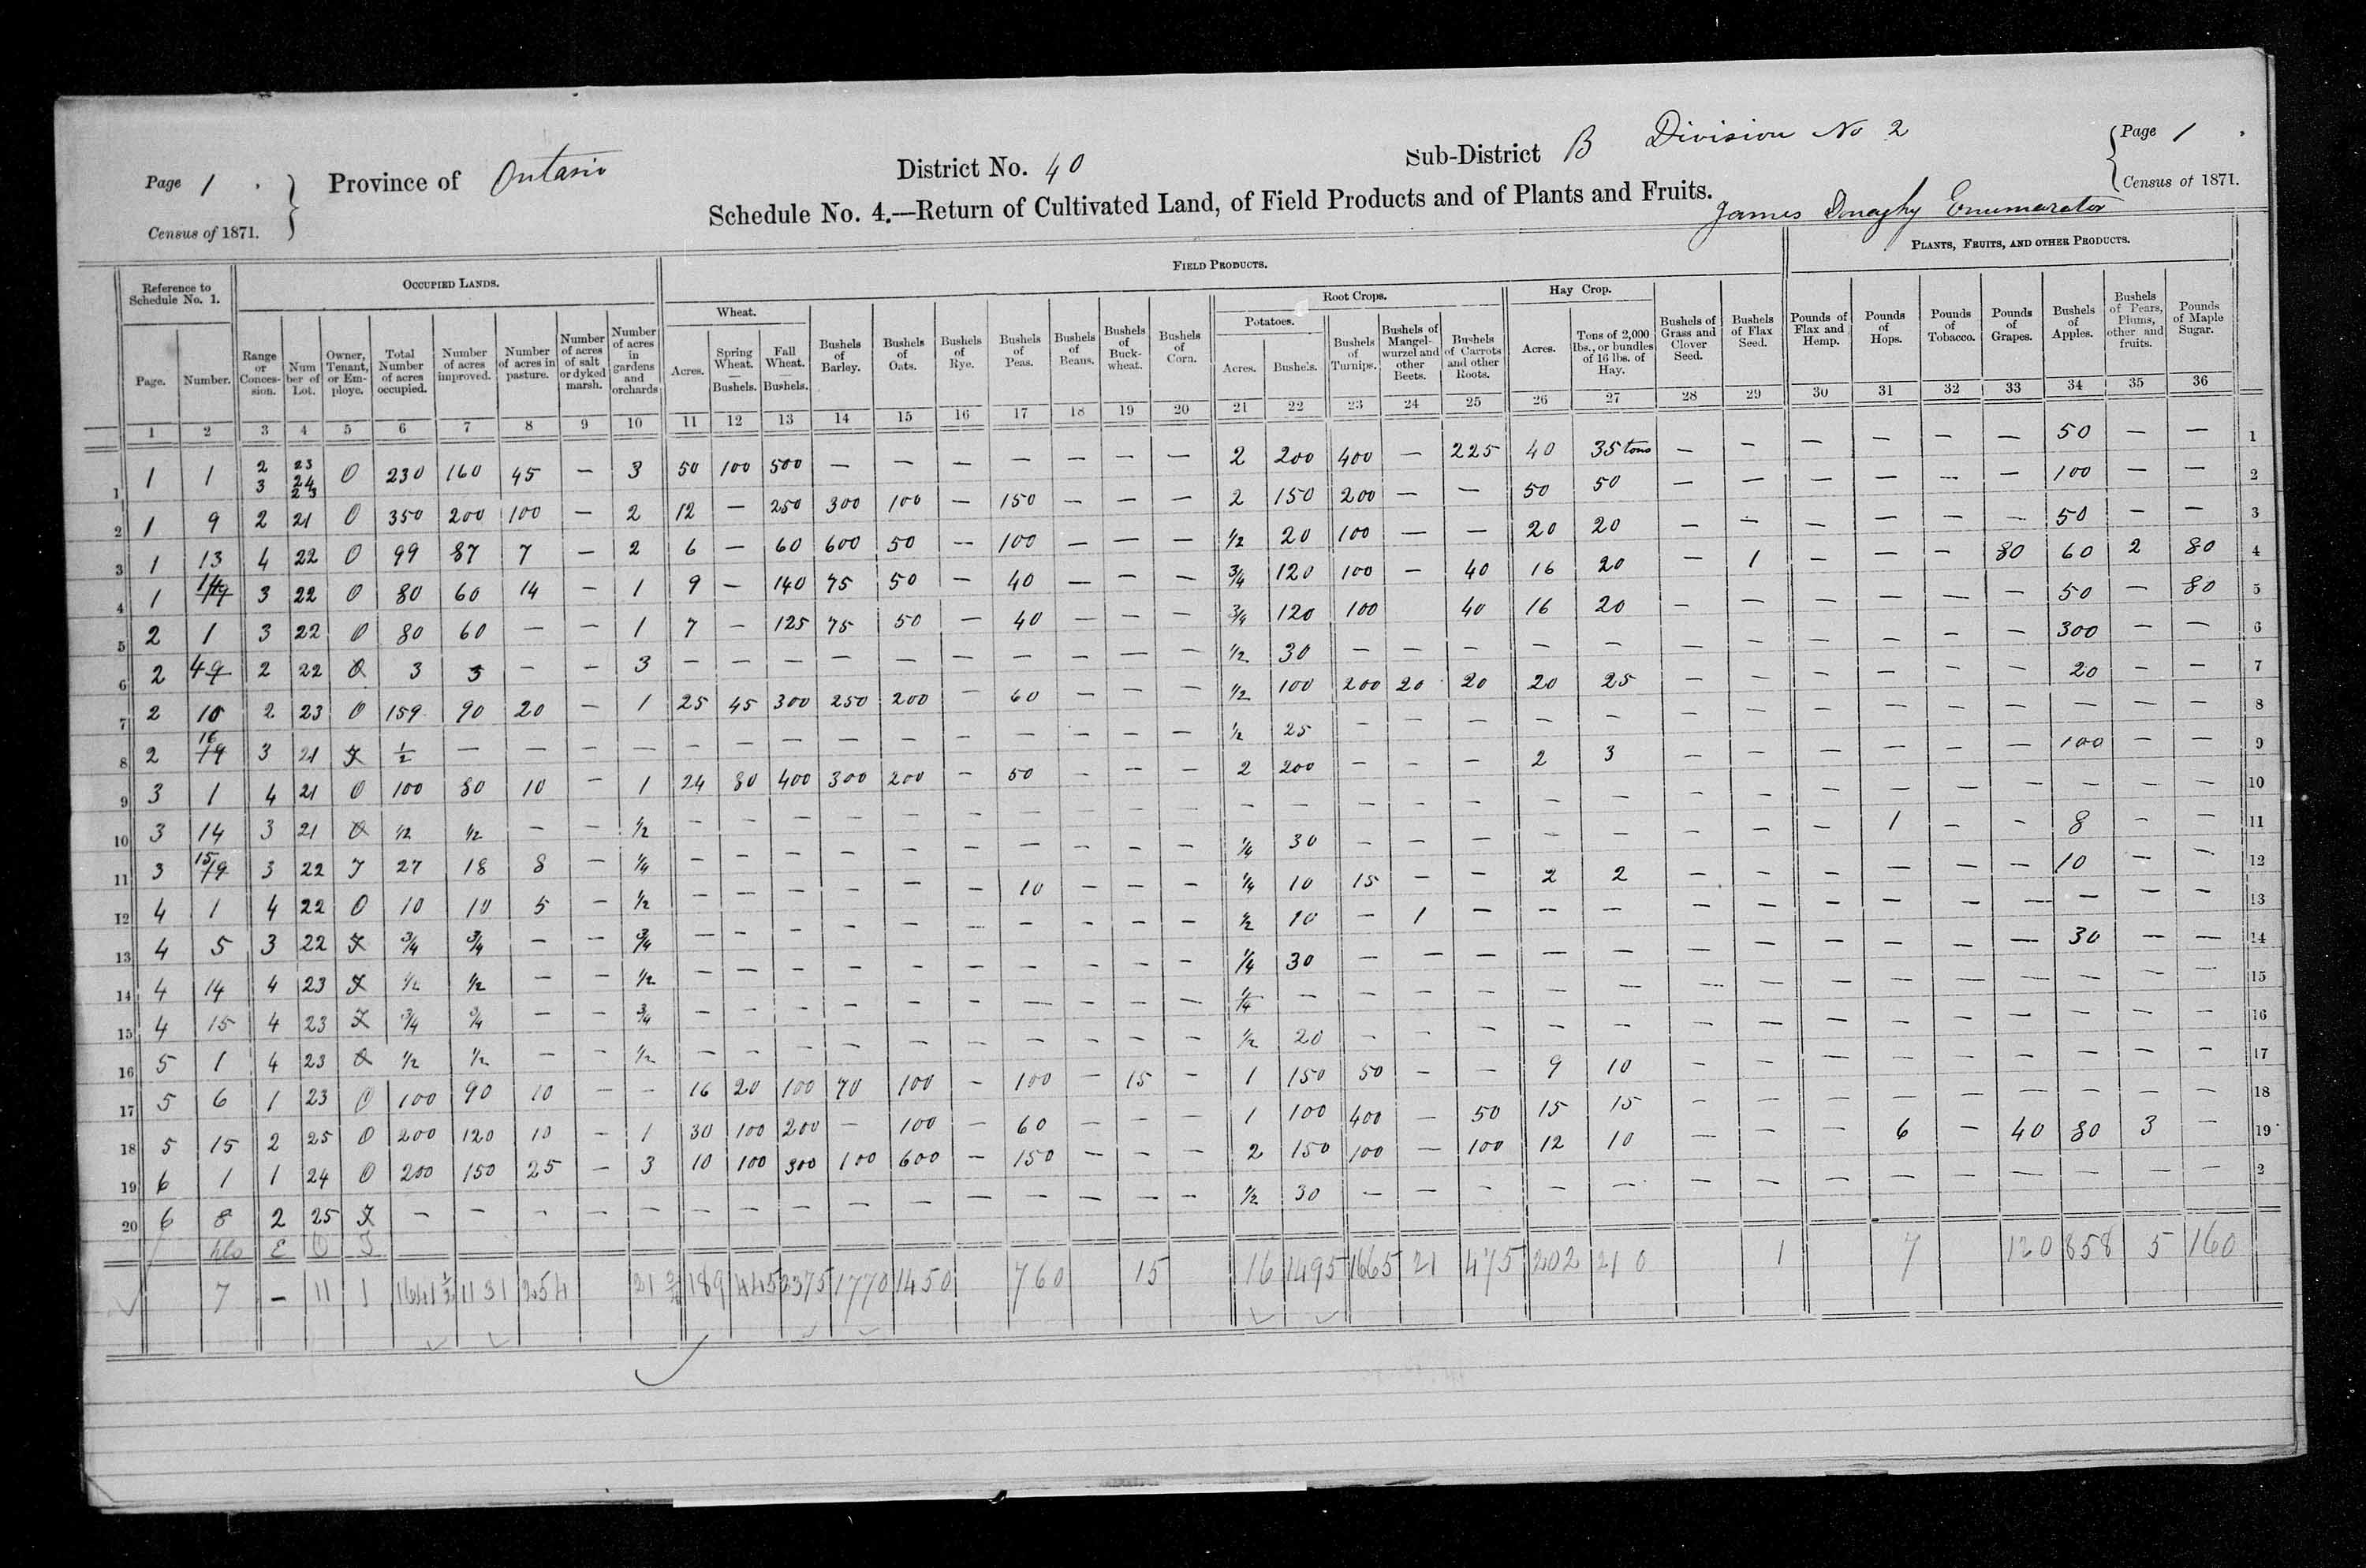 Page 1 . Province of Ontario District No. 40 Sub-District B Division No 2 Page 1 .
Census of 1871. Schedule No. 4.—Return of Cultivated Land, of Field Products and of Plants and Fruits. James Donaghy Enumerator Census of 1871.
Reference to Schedule No. 1. OCCUPIED LANDS. FIELD PRODUCTS. PLANTS, FRUITS, AND OTHER PRODUCTS.
Wheat. Root Crops. Potatoes. Hay Crop.
Page. Number. Range or Conces- sion. Num ber of Lot. Owner, Tenant, or Em- ploye. Total Number of acres occupied. Number of acres improved. Number of acres in pasture. Number of acres of salt or dyked marsh. Number of acres in gardens and orchards Acres. Spring Wheat. — Bushels. Fall Wheat. — Bushels. Bushels of Barley. Bushels of Oats. Bushels of Rye. Bushels of Peas. Bushels of Beans. Bushels of Buck- wheat. Bushels of Corn. Acres. Bushels. Bushels of Turnips. Bushels of Mangel- wurzel and other Beets. Bushels of Carrots and other Roots. Acres. Tons of 2,000 lbs., or bundles of 16 lbs. of Hay. Bushels of Grass and Clover Seed. Bushels of Flax Seed. Pounds of Flax and Hemp. Pounds of Hops. Pounds of Tobacco. Pounds of Grapes. Bushels of Apples. Bushels of Pears, Plums, other and fruits. Pounds of Maple Sugar.
1 2 3 4 5 6 7 8 9 10 11 12 13 14 15 16 17 18 19 20 21 22 23 24 25 26 27 28 29 30 31 32 33 34 35 36
1 1 1 2 3 23 24 23 O 230 160 45 — 3 50 100 500 — — — — — — — 2 200 400 — 225 40 35 tons — — — — — — 50 — — 1
2 1 9 2 21 O 350 200 100 — 2 12 — 250 300 100 — 150 — — — 2 150 200 — — 50 50 — — — — — — 100 — — 2
3 1 13 4 22 O 99 87 7 — 2 6 — 60 600 50 — 100 — — — 1/2 20 100 — — 20 20 — — — — — — 50 — — 3
4 1 14 3 22 O 80 60 14 — 1 9 — 140 75 50 — 40 — — — 3/4 120 100 — 40 16 20 — 1 — — — 80 60 2 80 4
5 2 1 3 22 O 80 60 — — 1 7 — 125 75 50 — 40 — — — 3/4 120 100 40 16 20 — — — — — — 50 — 80 5
6 2 4 2 22 O 3 3 — — 3 — — — — — — — — — — 1/2 30 — — — — — — — — — — — 300 — — 6
7 2 10 2 23 O 159 90 20 — 1 25 45 300 250 200 — 60 — — — 1/2 100 200 20 20 20 25 — — — — — — 20 — — 7
8 2 16 3 21 T 1/2 — — — — — — — — — — — — — — 1/2 25 — — — — — — — — — — — — — — 8
9 3 1 4 21 O 100 80 10 — 1 24 80 400 300 200 — 50 — — — 2 200 — — — 2 3 — — — — — — 100 — — 9
10 3 14 3 21 O 1/2 1/2 — — 1/2 — — — — — — — — — — — — — — — — — — — — — — — — — — 10
11 3 15 3 22 T 27 18 8 — 1/4 — — — — — — — — — — 1/4 30 — — — — — — — — 1 — — 8 — — 11
12 4 1 4 22 O 10 10 5 — 1/2 — — — — — — 10 — — — 1/4 10 15 — — 2 2 — — — — — — 10 — — 12
13 4 5 3 22 T 3/4 3/4 — — 3/4 — — — — — — — — — — 1/2 10 — 1 — — — — — — — — — — — — 13
14 4 14 4 23 T 1/2 1/2 — — 1/2 — — — — — — — — — — 1/4 30 — — — — — — — — — — — 30 — — 14
15 4 15 4 23 T 3/4 3/4 — — 3/4 — — — — — — — — — — 1/4 — — — — — — — — — — — — — — — 15
16 5 1 4 23 O 1/2 1/2 — — 1/2 — — — — — — — — — — 1/2 20 — — — — — — — — — — — — — — 16
17 5 6 1 23 O 100 90 10 — — 16 20 100 70 100 — 100 — 15 — 1 150 50 — — 9 10 — — — — — — — — — 17
18 5 15 2 25 O 200 120 10 — 1 30 100 200 — 100 — 60 — — — 1 100 400 — 50 15 15 — — — — — — — — — 18
19 6 1 1 24 O 200 150 25 — 3 10 100 300 100 600 — 150 — — — 2 150 100 — 100 12 10 — — — 6 — 40 80 3 — 19
20 6 8 2 25 T — — — — — — — — — — — — — — — 1/2 30 — — — — — — — — — — — — — — 2
E O T
7 — 11 1 1131 254 189 445 2375 1770 1450 760 15 16 1495 1665 21 475 202 210 1 7 120 858 5 160